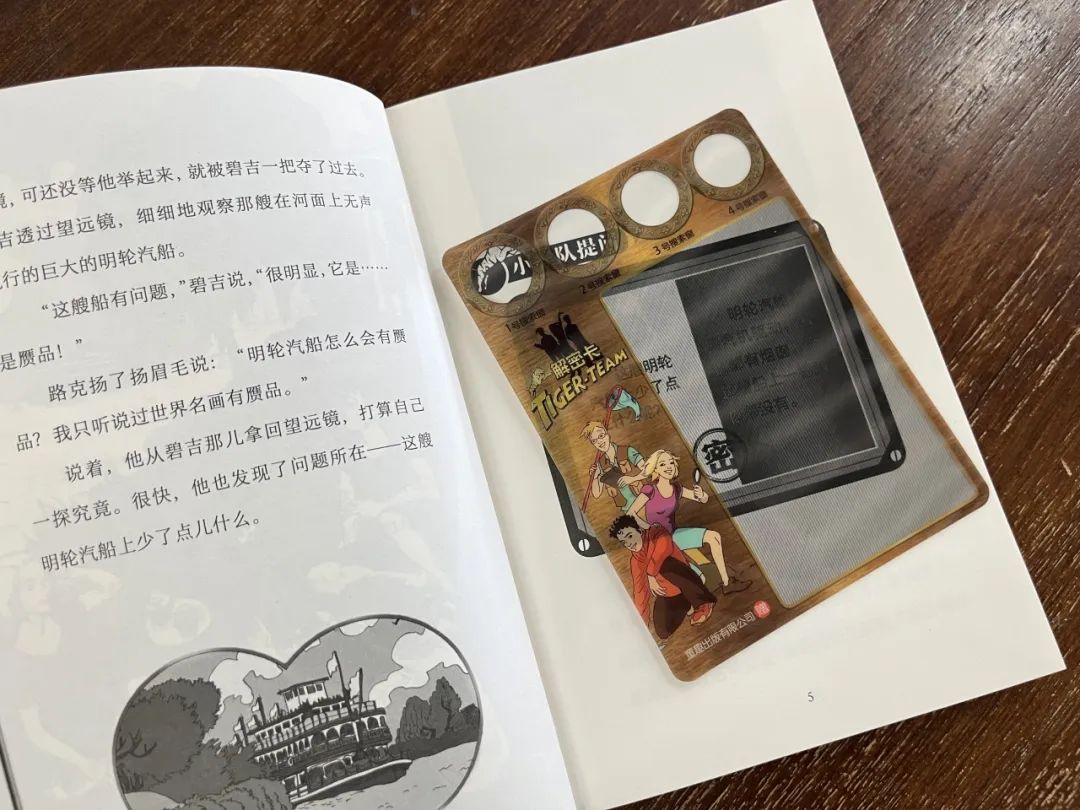 镜，可还没等他举起来，就被碧吉一把夺了过去。
吉透过望远镜，细细地观察那艘在河面上无声
行的巨大的明轮汽船。
“这艘船有问题，”碧吉说，“很明显，它是……
是赝品！”
路克扬了扬眉毛说：“明轮汽船怎么会有赝
品？我只听说过世界名画有赝品。”
说着，他从碧吉那儿拿回望远镜，打算自己
一探究竟。很快，他也发现了问题所在——这艘
明轮汽船上少了点儿什么。
小
队提问
1号搜索窗
2号搜索窗
3号搜索窗
4号搜索窗
解密卡
TIGER-TEAM
明轮
少了点
什么?
密
明轮汽船
有烟囱
没有。
童趣出版有限公司
5